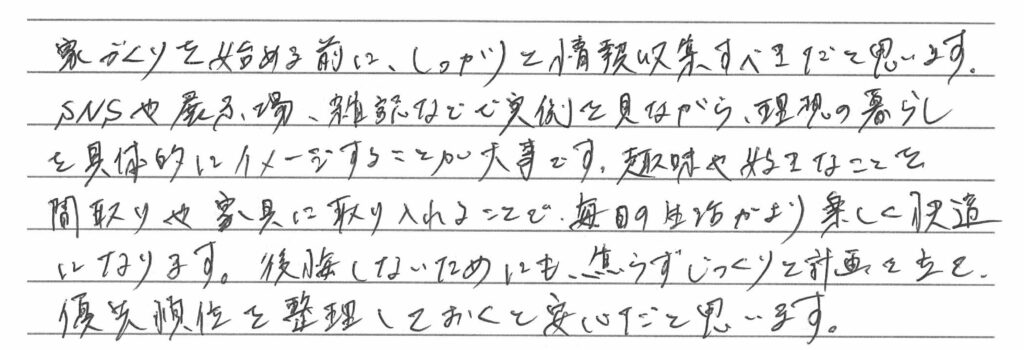 家づくりを始める前に、しっかりと情報収集すべきだと思います。
SNSや展示場、雑誌などで実例を見ながら、理想の暮らし
を具体的にイメージすることが大事です。趣味や好きなことを
間取りや家具に取り入れることで、毎日の生活がより楽しく快適
になります。後悔しないためにも、焦らずじっくりと計画を立て、
優先順位を整理しておくと安心だと思います。